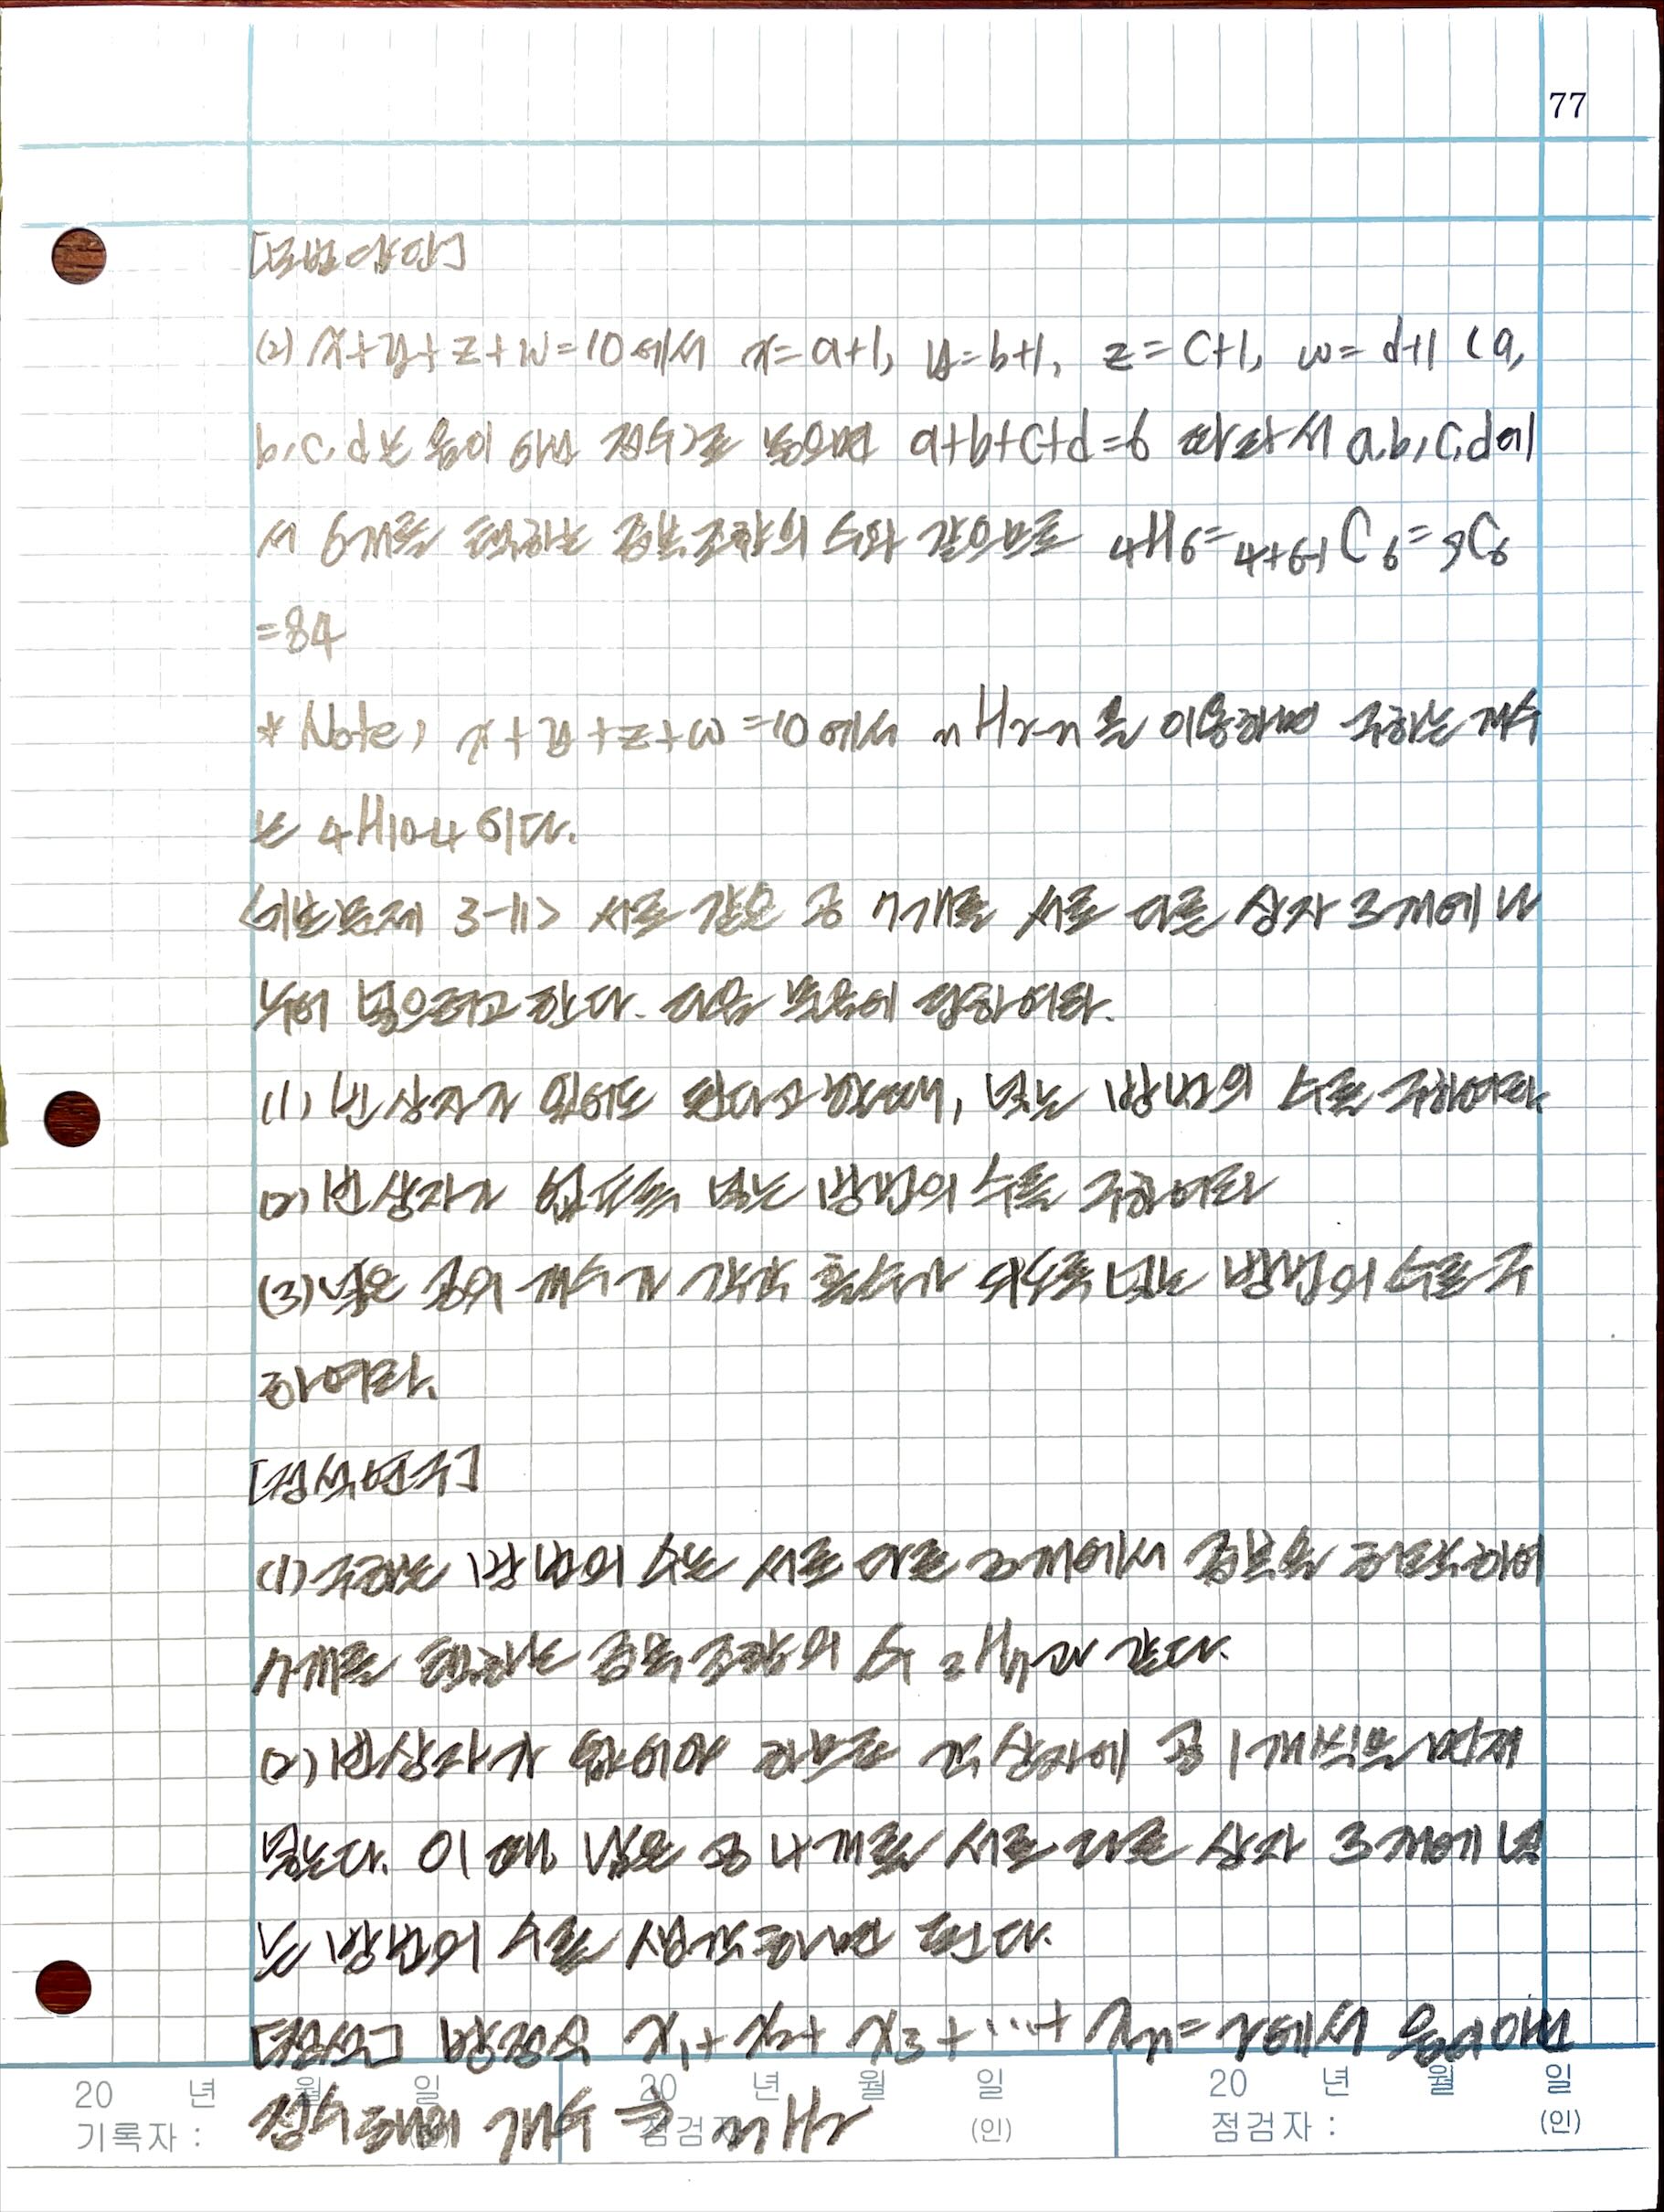 77
[모범답안]
(2) x+y+z+w=10에서 x=a+1, y=b+1, z=c+1, w=d+1 (a,
b, c, d는 음이 아닌 정수)로 놓으면 a+b+c+d=6 따라서 a, b, c, d에
서 6개를 택하는 중복조합의 수와 같으므로 ₄H₆=₄₊₆₋₁C₆=₉C₆
=84
*Note, x+y+z+w=10에서 nHr-n을 이용하면 구하는 개수
는 ₄H₁₀₋₄이다.
<기본문제 3-11> 서로 같은 공 7개를 서로 다른 상자 3개에 나
누어 넣으려고 한다. 다음 물음에 답하여라.
(1) 빈 상자가 있어도 된다고 할 때, 넣는 방법의 수를 구하여라.
(2) 빈 상자가 없도록 넣는 방법의 수를 구하여라
(3) 넣은 공의 개수가 각각 홀수가 되도록 넣는 방법의 수를 구
하여라.
[정석연구]
(1) 구하는 방법의 수는 서로 다른 3개에서 중복을 허락하여
7개를 택하는 중복조합의 수 ₃H₇과 같다.
(2) 빈 상자가 없어야 하므로 각 상자에 공 1개씩을 먼저
넣는다. 이때, 남은 공 4개를 서로 다른 상자 3개에 넣
는 방법의 수를 생각하면 된다.
[정석] 방정식 x₁+x₂+x₃+…+xn=r에서 음이 아닌
정수해의 개수 ⇒ nHr
20 년 월 일 20 년 월 일 20 년 월 일
기록자 : 점검자 (인) 점검자 : (인)